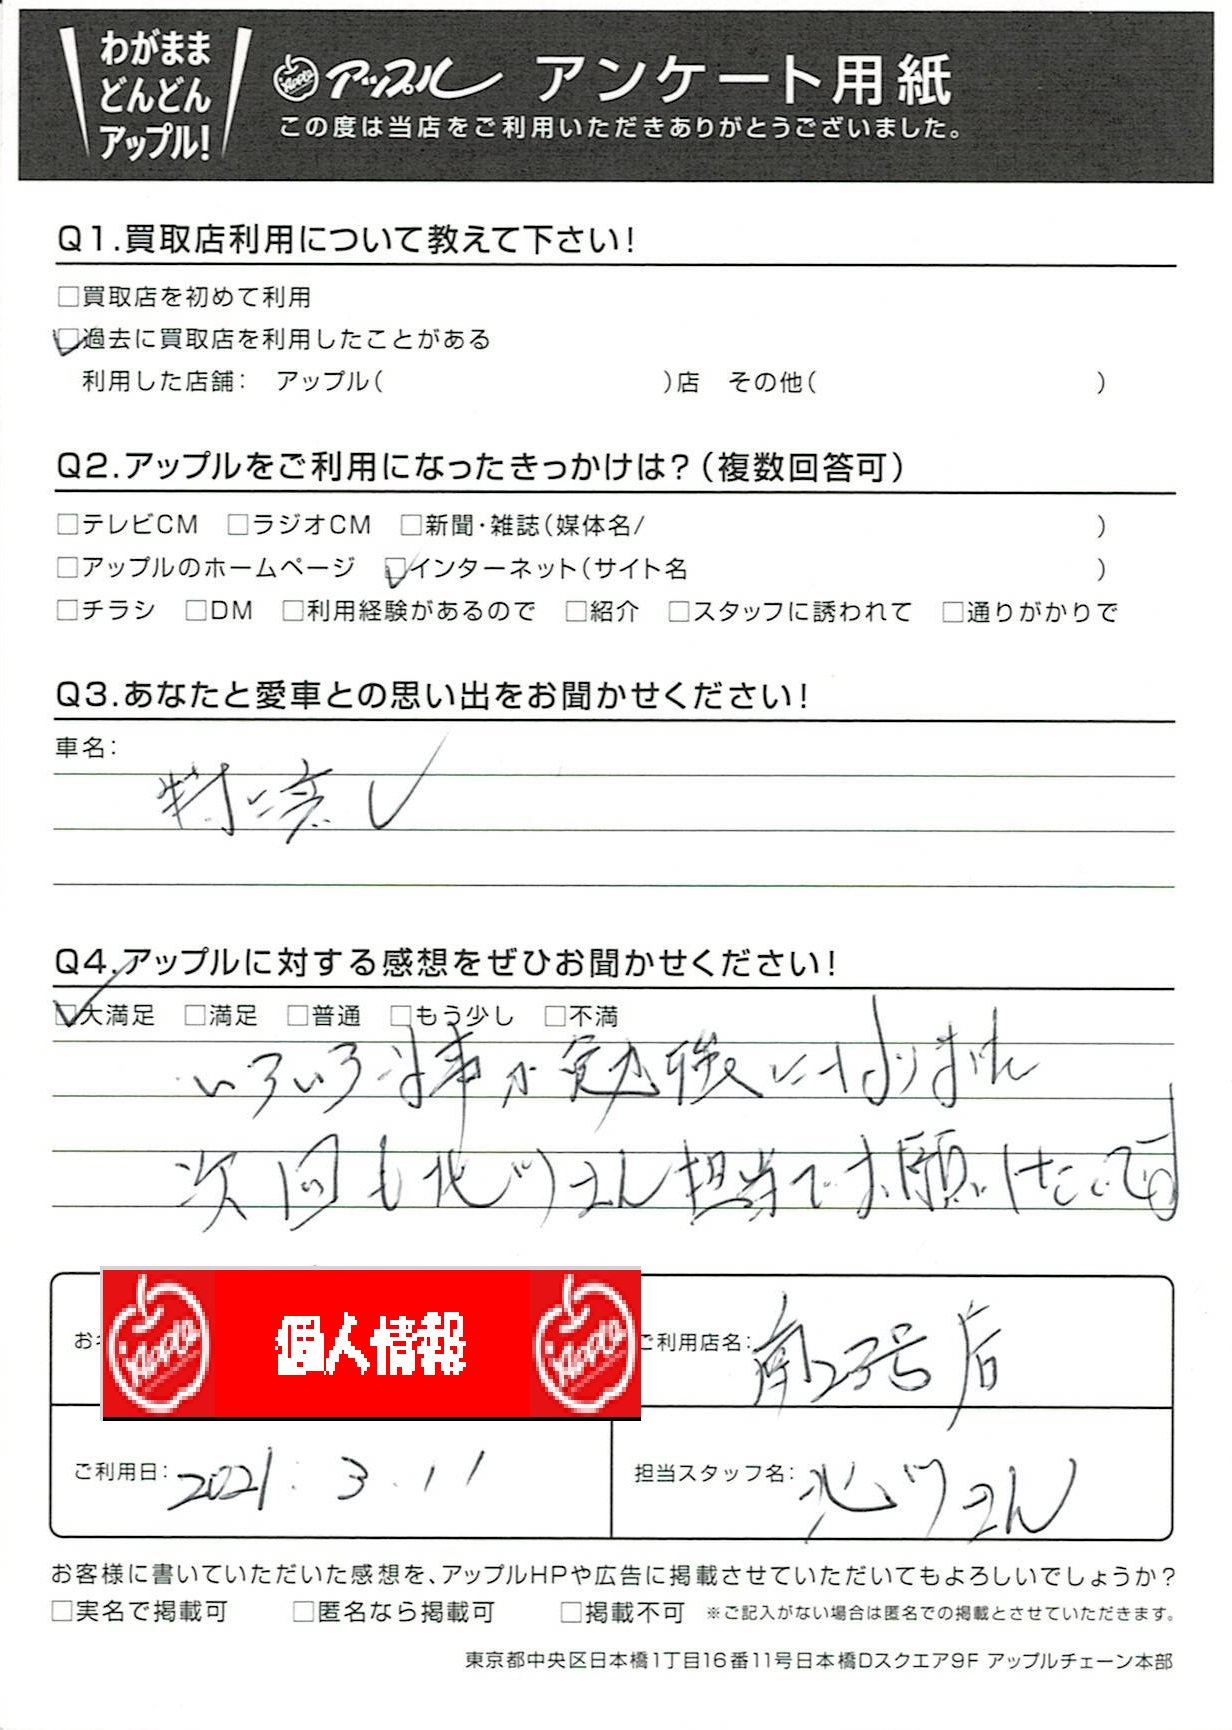 わがまま
どんどん
アップル!
Apple アップル アンケート用紙
この度は当店をご利用いただきありがとうございました。
Q1.買取店利用について教えて下さい!
□買取店を初めて利用
☑過去に買取店を利用したことがある
利用した店舗: アップル( )店 その他( )
Q2.アップルをご利用になったきっかけは?(複数回答可)
□テレビCM □ラジオCM □新聞・雑誌(媒体名/ )
□アップルのホームページ ☑インターネット(サイト名 )
□チラシ □DM □利用経験があるので □紹介 □スタッフに誘われて □通りがかりで
Q3.あなたと愛車との思い出をお聞かせください!
車名:
特に無し
Q4.アップルに対する感想をぜひお聞かせください!
☑大満足 □満足 □普通 □もう少し □不満
いろいろな事が勉強になりました
次回も北づさん担当でお願いしたいです
お
個人情報
ご利用店名: 南23号店
ご利用日: 2021.3.11
担当スタッフ名: 北づさん
お客様に書いていただいた感想を、アップルHPや広告に掲載させていただいてもよろしいでしょうか?
□実名で掲載可 □匿名なら掲載可 □掲載不可 ※ご記入がない場合は匿名での掲載とさせていただきます。
東京都中央区日本橋1丁目16番11号日本橋Dスクエア9F アップルチェーン本部